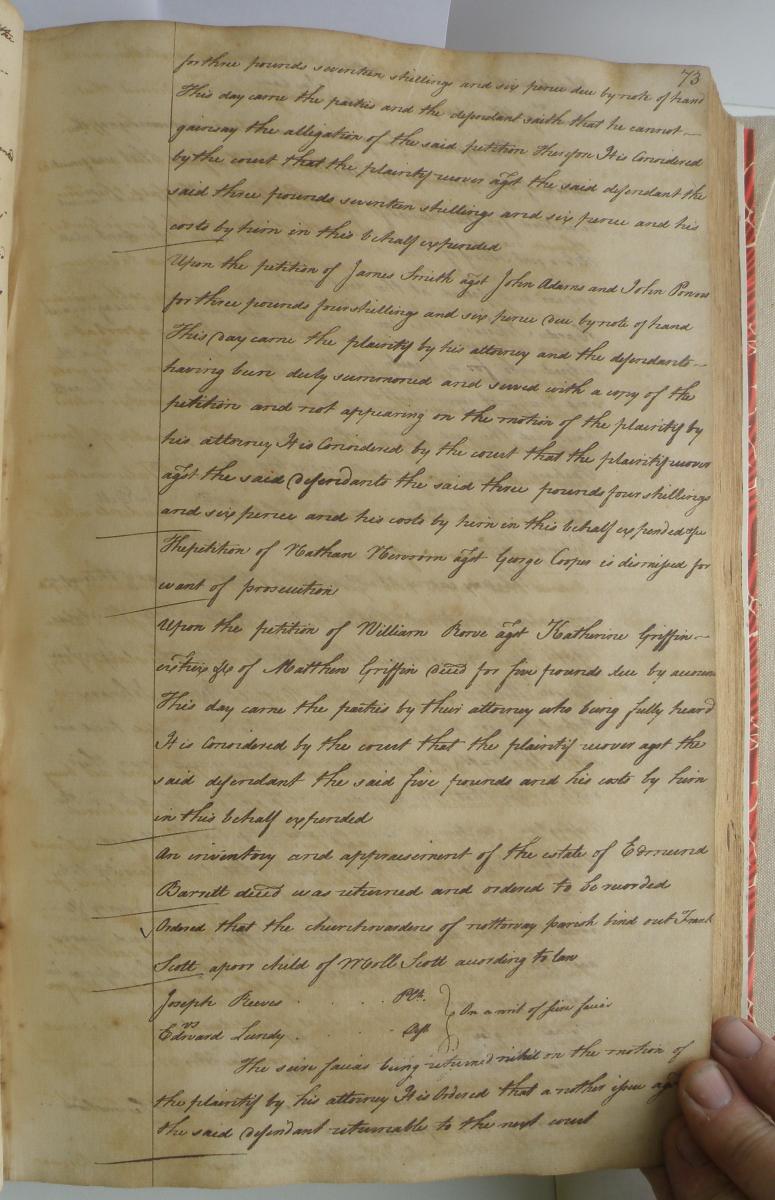 73
for three pounds seventeen shillings and six pence due by note of hand
This day came the parties and the defendant saith that he cannot
gainsay the allegation of the said petition Therefon It is Considered
by the court that the plaintif recover agst the said defendant the
said three pounds seventeen shillings and six pence and his
costs by him in this behalf expended
Upon the petition of James Smith agst John Adams and John
for three pounds four shillings and six pence due by note of hand
This day came the plaintif by his attorney and the defendants
having been duly summoned and served with a copy of the
petition and not appearing on the motion of the plaintif by
his attorney It is Considered by the court that the plaintif recover
agst the said defendants the said three pounds four shillings
and six pence and his costs by him in this behalf expended
The petition of Nathan Newsom agst George Cooper is dismissed for
want of prosecution
Upon the petition of William agst Katherine Griffin
of Matthew Griffin decd for five pounds due by accoun
This day came the parties by their attorney who being fully heard
It is Considered by the court that the plaintif recover agst the
said defendant the said five pounds and his costs by him
in this behalf expended
An inventory and appraisement of the estate of Edmund
Barrett decd was returned and ordered to be recorded
Ordered that the churchwardens of nottoway parish bind out Frank
Scott a poor child of Moll Scott according to law
Joseph Reeves Plt.
vs On a writ of scire facias
Edward Lundy Deft
The scire facias being returned nihil on the motion of
the plaintif by his attorney It is Ordered that another issue agst
the said defendant returnable to the next court